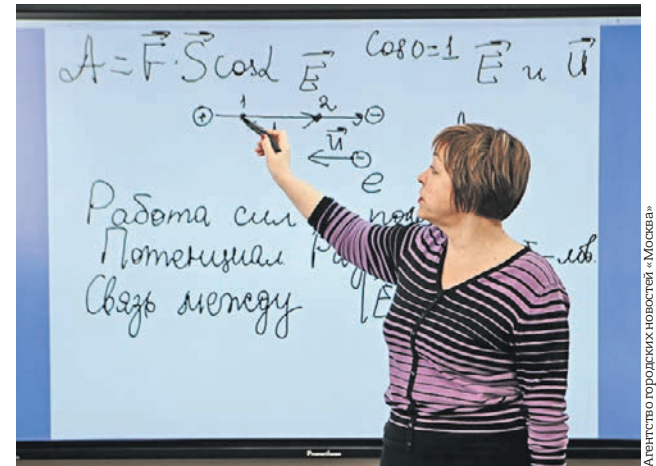 A = F⃗·S⃗ cosα E⃗ Cos0=1 E⃗ и U⃗
1 2
+ −
u⃗ −
e
Работа сил
Потенциал -лов.
Связь между E
Promethean
Агентство городских новостей «Москва»